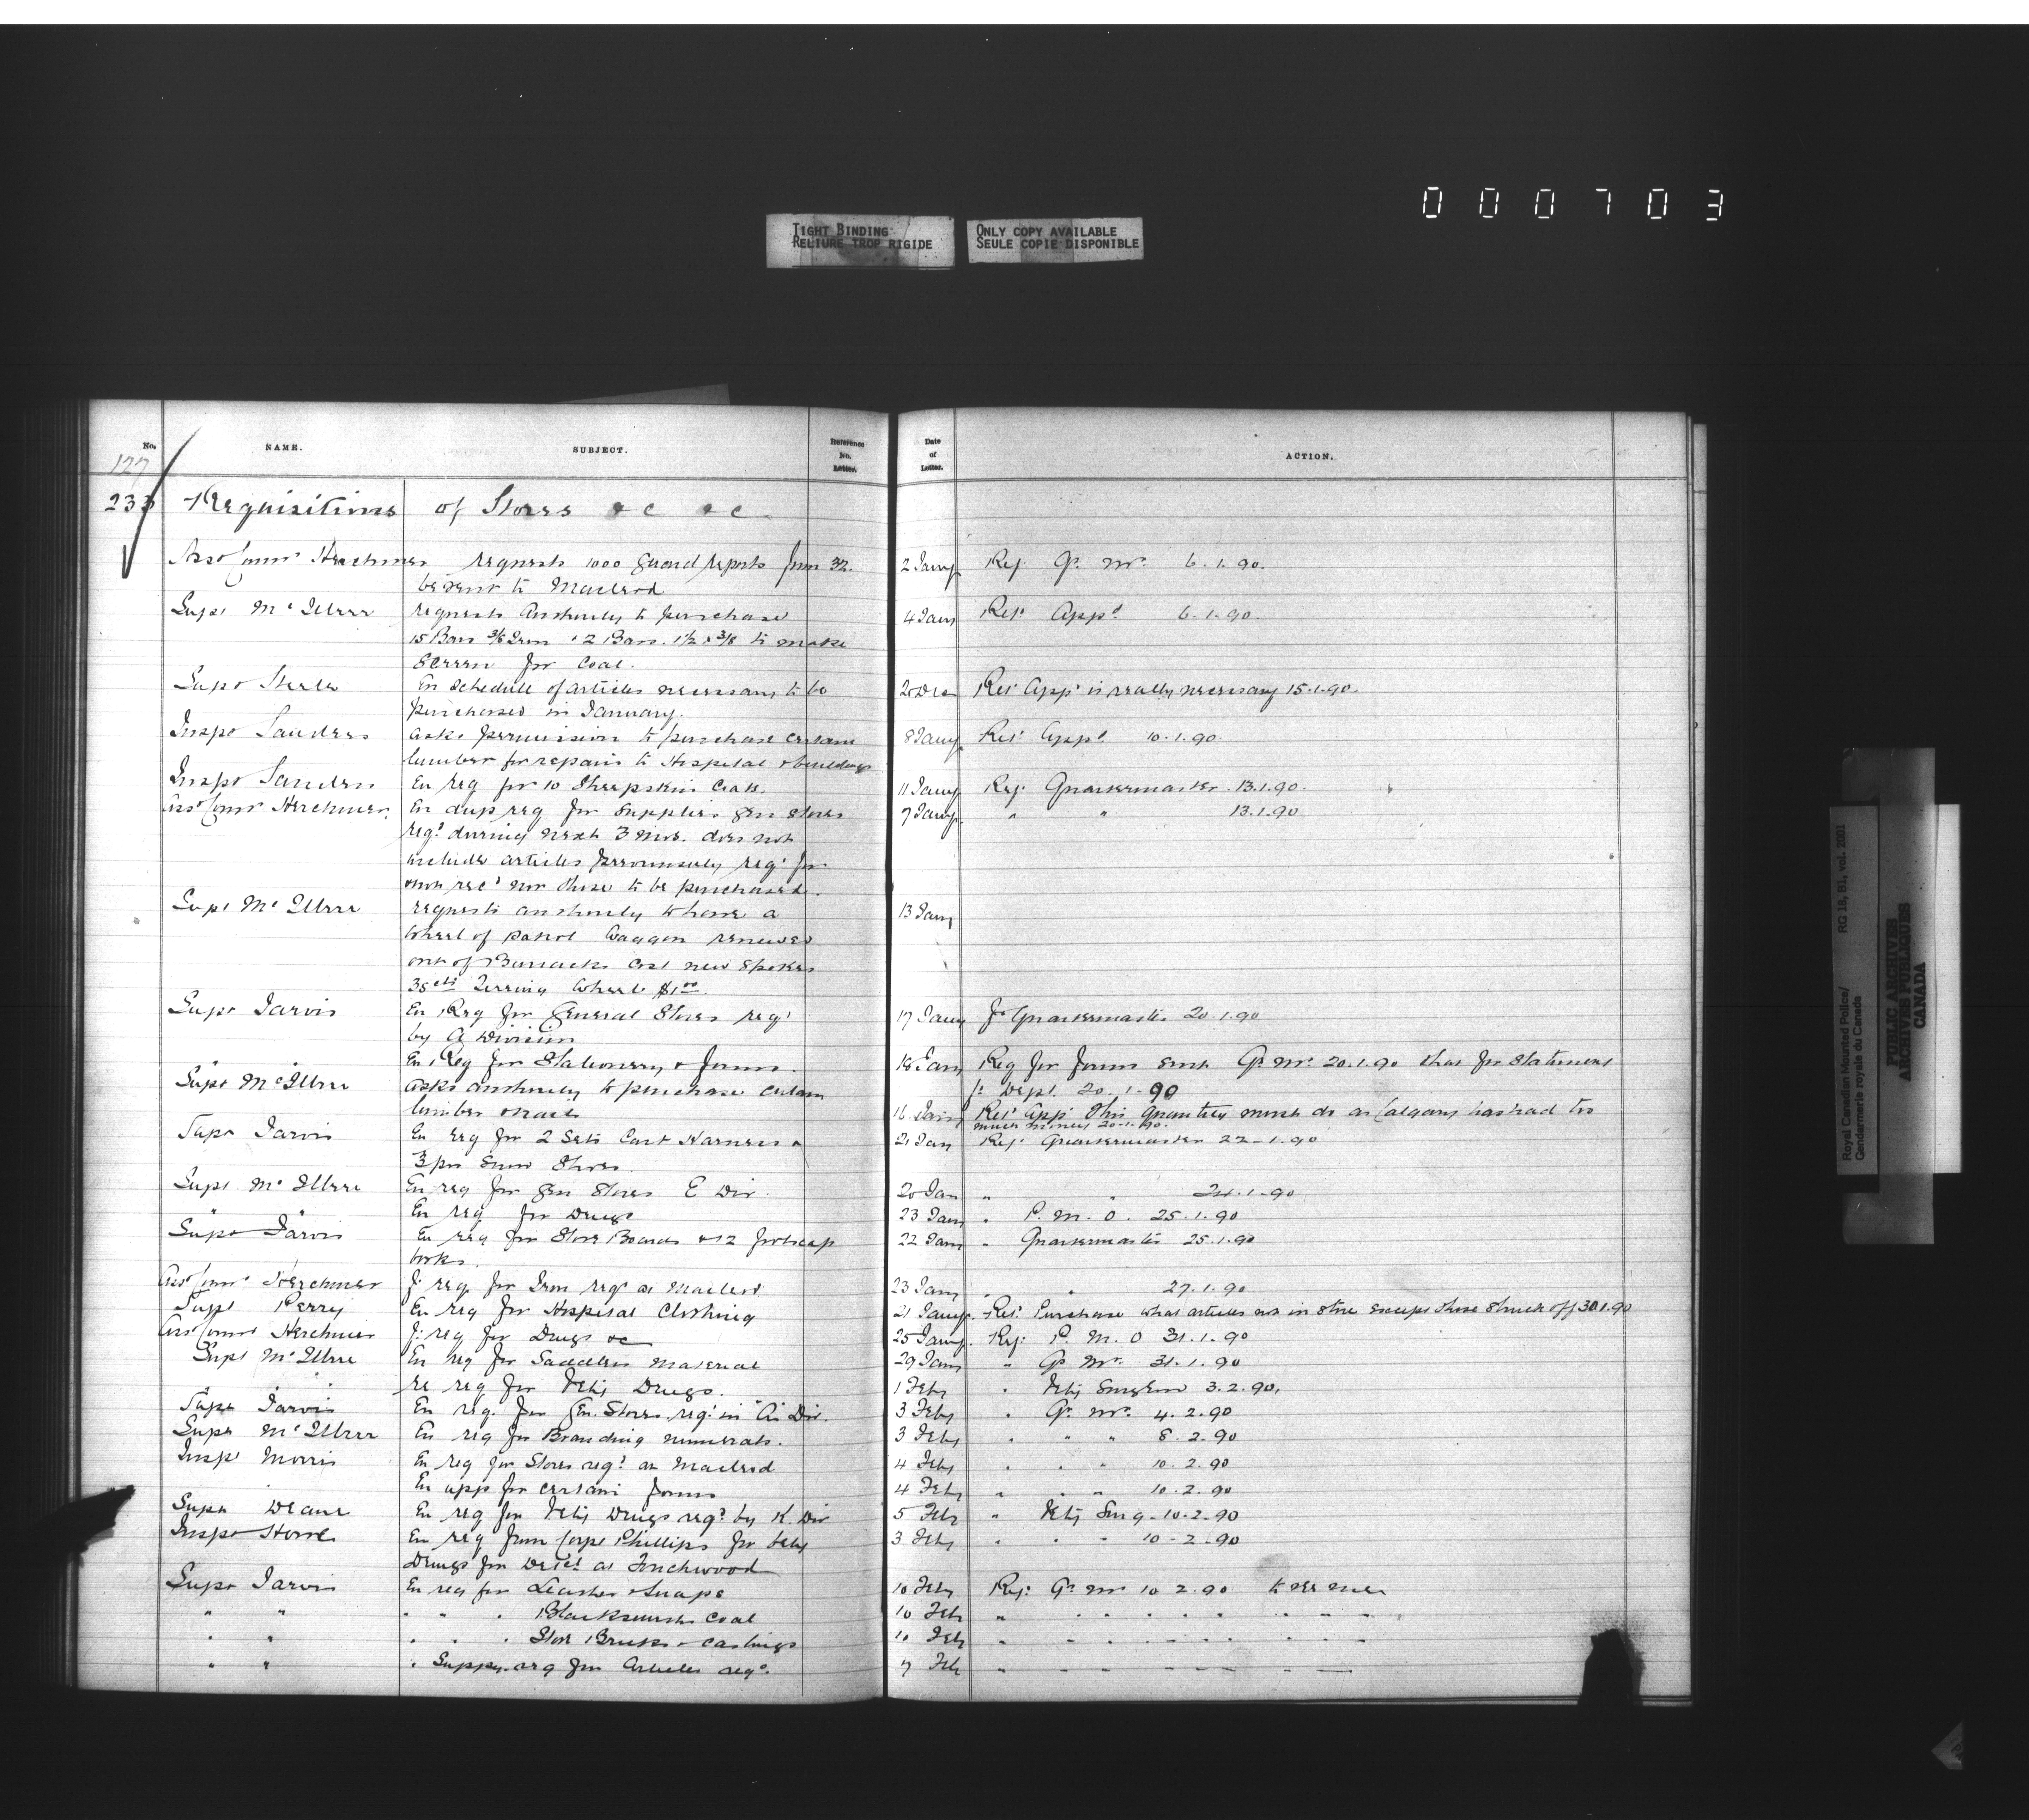 000703
TIGHT BINDING
RELIURE TROP RIGIDE
ONLY COPY AVAILABLE
SEULE COPIE DISPONIBLE
No. NAME. SUBJECT. Reference No. Letter. Date of Letter. ACTION.
127
233 Requisitions of Stores &c &c
Asst Commr Herchmer requests 1000 Guard reports form 32. 2 Jany Ref. Qr. Mr. 6.1.90.
be sent to Macleod
Supt McIllree requests authority to purchase 4 Jany Ret. Appd. 6.1.90.
15 Bars 3/8 Iron & 2 Bars 1½ x 3/8 to make
Screen for Coal.
Supt Steele En Schedule of articles necessary to be 20 Dec Ret. App. is really necessary 15.1.90.
purchased in January.
Inspr Sanders asks permission to purchase certain 8 Jany Ret. Appd. 10.1.90.
lumber for repairs to Hospital & buildings
Inspr Sanders En req for 10 Sheepskin Coats. 11 Jany Ref. Quartermaster 13.1.90.
Asst Commr Herchmer. En dup req for Supplies Gen Stores 7 Jany. " " 13.1.90
reqd during next 3 mos. does not
include articles previously reqd for
& not recd nor those to be purchased.
Supt McIllree requests authority to have a 13 Jany
Wheel of patrol Waggon renewed
out of Barracks Cost new Spokes
35 cts Wheel $1.00.
Supt Jarvis En Req for General Stores reqd 17 Jany f Quartermaster 20.1.90
by A Division
En Req for Stationery & forms. 18 Jany Req for forms sent Qr. Mr. 20.1.90 that for Stationery
f. Dept. 20.1.90
Supt McIllree asks authority to purchase certain
lumber & nails 16 Jany Ret. App. This quantity must do as Calgary has had too
much money 20.1.90.
Supt Jarvis En req for 2 Sets Cart Harness & 21 Jany Ref. Quartermaster 22-1.90
3 prs Snow Shoes.
Supt McIllree En req for Gen Stores E Div. 20 Jan " " 24.1.90
" " En req for Drugs 23 Jany " P. M. O. 25.1.90
Supt Jarvis En req for Stove Boards & 12 foolscap 22 Jany " Quartermaster 25.1.90
books.
Asst Commr Herchmer f. req. for Iron reqd at Macleod 23 Jany " " 27.1.90
Supt Perry En req for Hospital Clothing 21 Jany. Ret. Purchase what articles not in store except those struck off 30.1.90
Asst Commr Herchmer f. req for Drugs &c 25 Jany. Ref. P. M. O 31.1.90
Supt McIllree En req for Saddlers Material 29 Jany " Qr Mr. 31.1.90
" " re req for Vety Drugs. 1 Feby " Vety Surgeon 3.2.90.
Supt Jarvis En req. for Gen. Stores reqd in "A" Div. 3 Feby " Qr. Mr. 4.2.90
Supt McIllree En req for Branding numerals. 3 Feby " " " 8.2.90
Insp Morris En req for Stores reqd at Macleod 4 Feby " " " 10.2.90
En app for certain forms 4 Feby " " " 10.2.90
Supt Deane En req for Vety Drugs reqd by K. Div 5 Feby " Vety Surg. 10.2.90
Inspr Howe En req from Corpl Phillips for Vety 3 Feby " " " 10-2.90
Drugs for Detct at Touchwood
Supt Jarvis En req for Leather & Snaps 10 Feby Ref. Qr Mr 10 2.90
" " " " " Blacksmiths Coal 10 Feb " " " " "
" " " " " Stove Bricks & Castings 10 Feb " " " " "
" " " Suppy. req for Articles reqd. 7 Feb " " " " "
Royal Canadian Mounted Police/ RG 18, B1, vol. 2001
Gendarmerie royale du Canada
PUBLIC ARCHIVES
ARCHIVES PUBLIQUES
CANADA